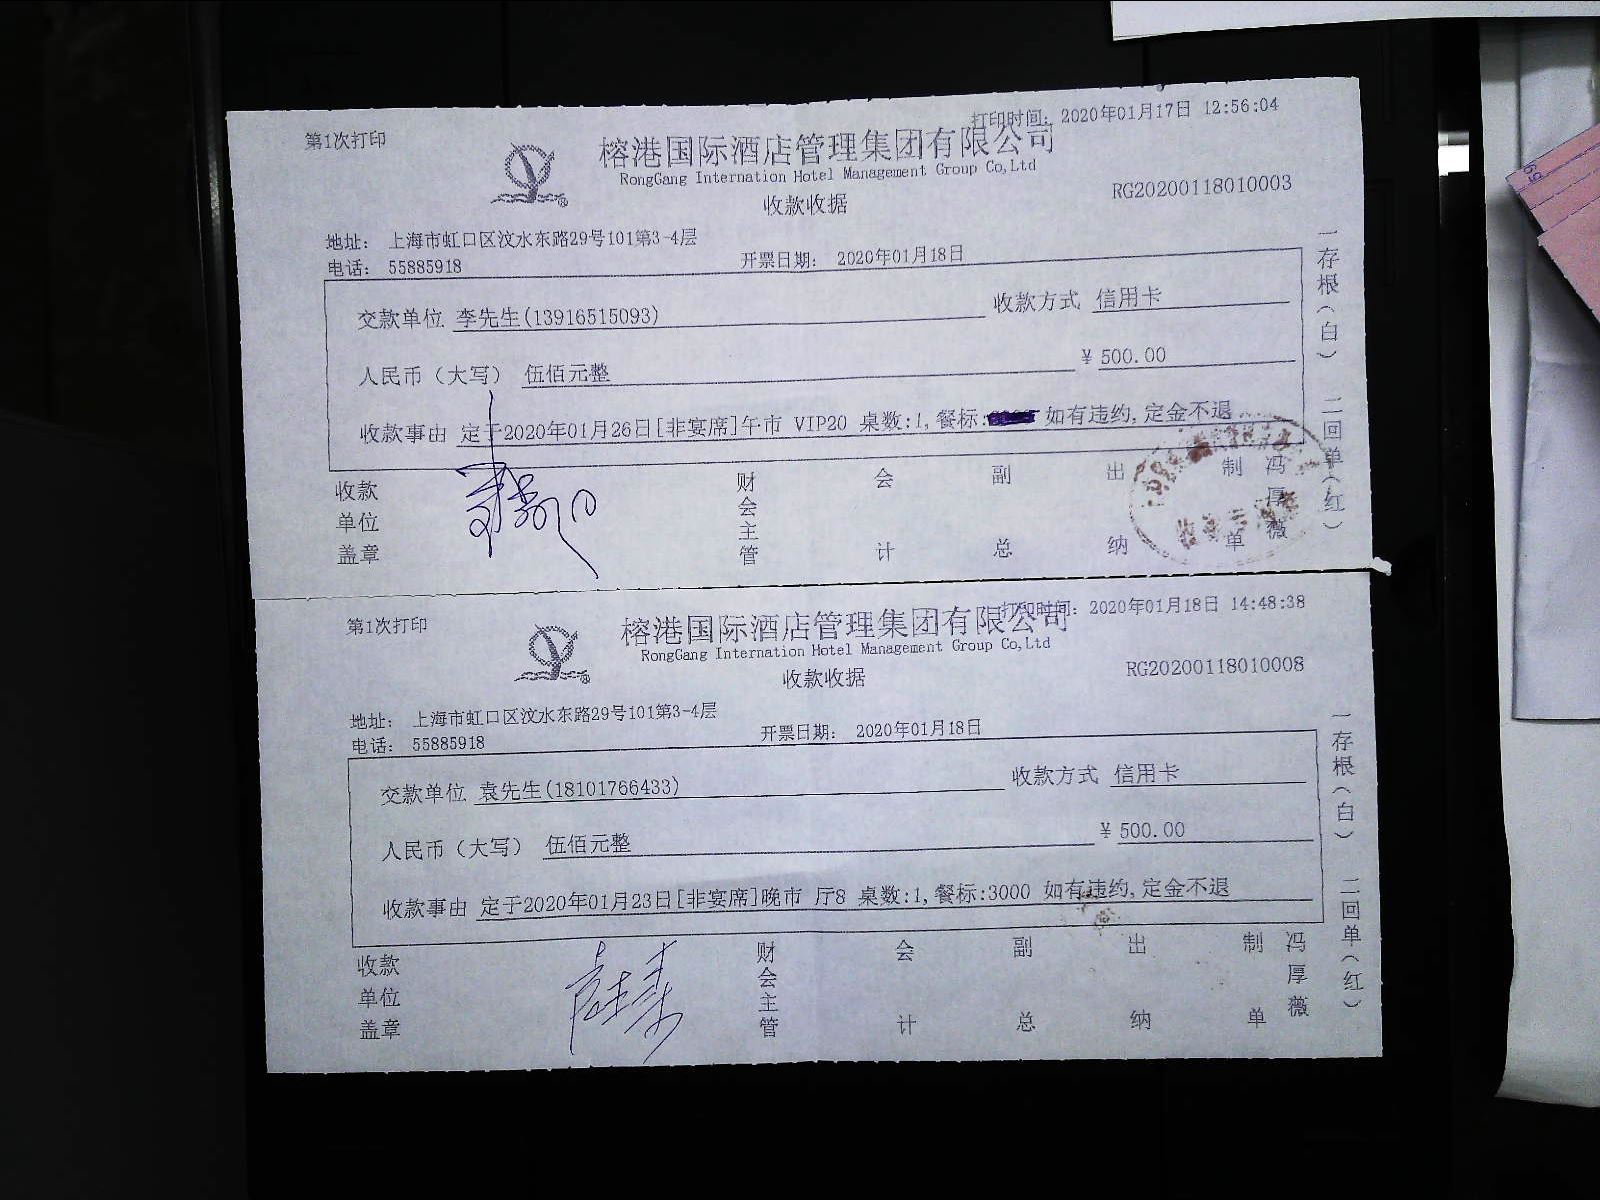 第1次打印
打印时间: 2020年01月17日 12:56:04
榕港国际酒店管理集团有限公司
RongGang Internation Hotel Management Group Co,Ltd
收款收据
RG20200118010003
地址: 上海市虹口区汶水东路29号101第3-4层
电话: 55885918
开票日期: 2020年01月18日
交款单位 李先生(13916515093)
收款方式 信用卡
人民币（大写） 伍佰元整
¥ 500.00
收款事由 定于2020年01月26日[非宴席]午市 VIP20 桌数:1,餐标: 如有违约,定金不退
收款单位盖章
财会主管
会计
副总
出纳
制单
冯厚薇
一存根(白)
二回单(红)
第1次打印
打印时间: 2020年01月18日 14:48:38
榕港国际酒店管理集团有限公司
RongGang Internation Hotel Management Group Co,Ltd
收款收据
RG20200118010008
地址: 上海市虹口区汶水东路29号101第3-4层
电话: 55885918
开票日期: 2020年01月18日
交款单位 袁先生(18101766433)
收款方式 信用卡
人民币（大写） 伍佰元整
¥ 500.00
收款事由 定于2020年01月23日[非宴席]晚市 厅8 桌数:1,餐标:3000 如有违约,定金不退
收款单位盖章
财会主管
会计
副总
出纳
制单
冯厚薇
一存根(白)
二回单(红)